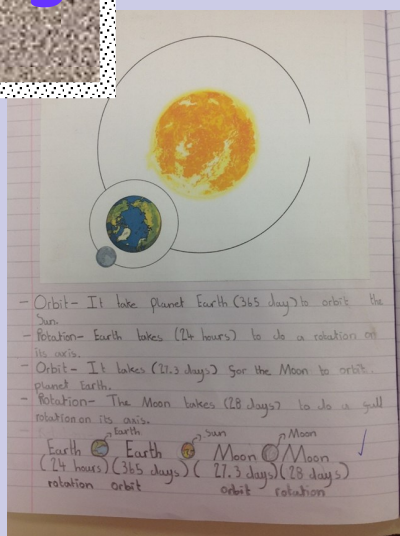 - Orbit- It take planet Earth (365 day) to orbit the
Sun.
- Rotation- Earth takes (24 hours) to do a rotation on
its axis.
- Orbit- It takes (27.3 days) for the Moon to orbit
planet Earth.
- Rotation- The Moon takes (28 days) to do a full
rotation on its axis.
Earth Sun Moon
Earth Earth Moon Moon
(24 hours) (365 days) (27.3 days) (28 days)
rotation orbit orbit rotation